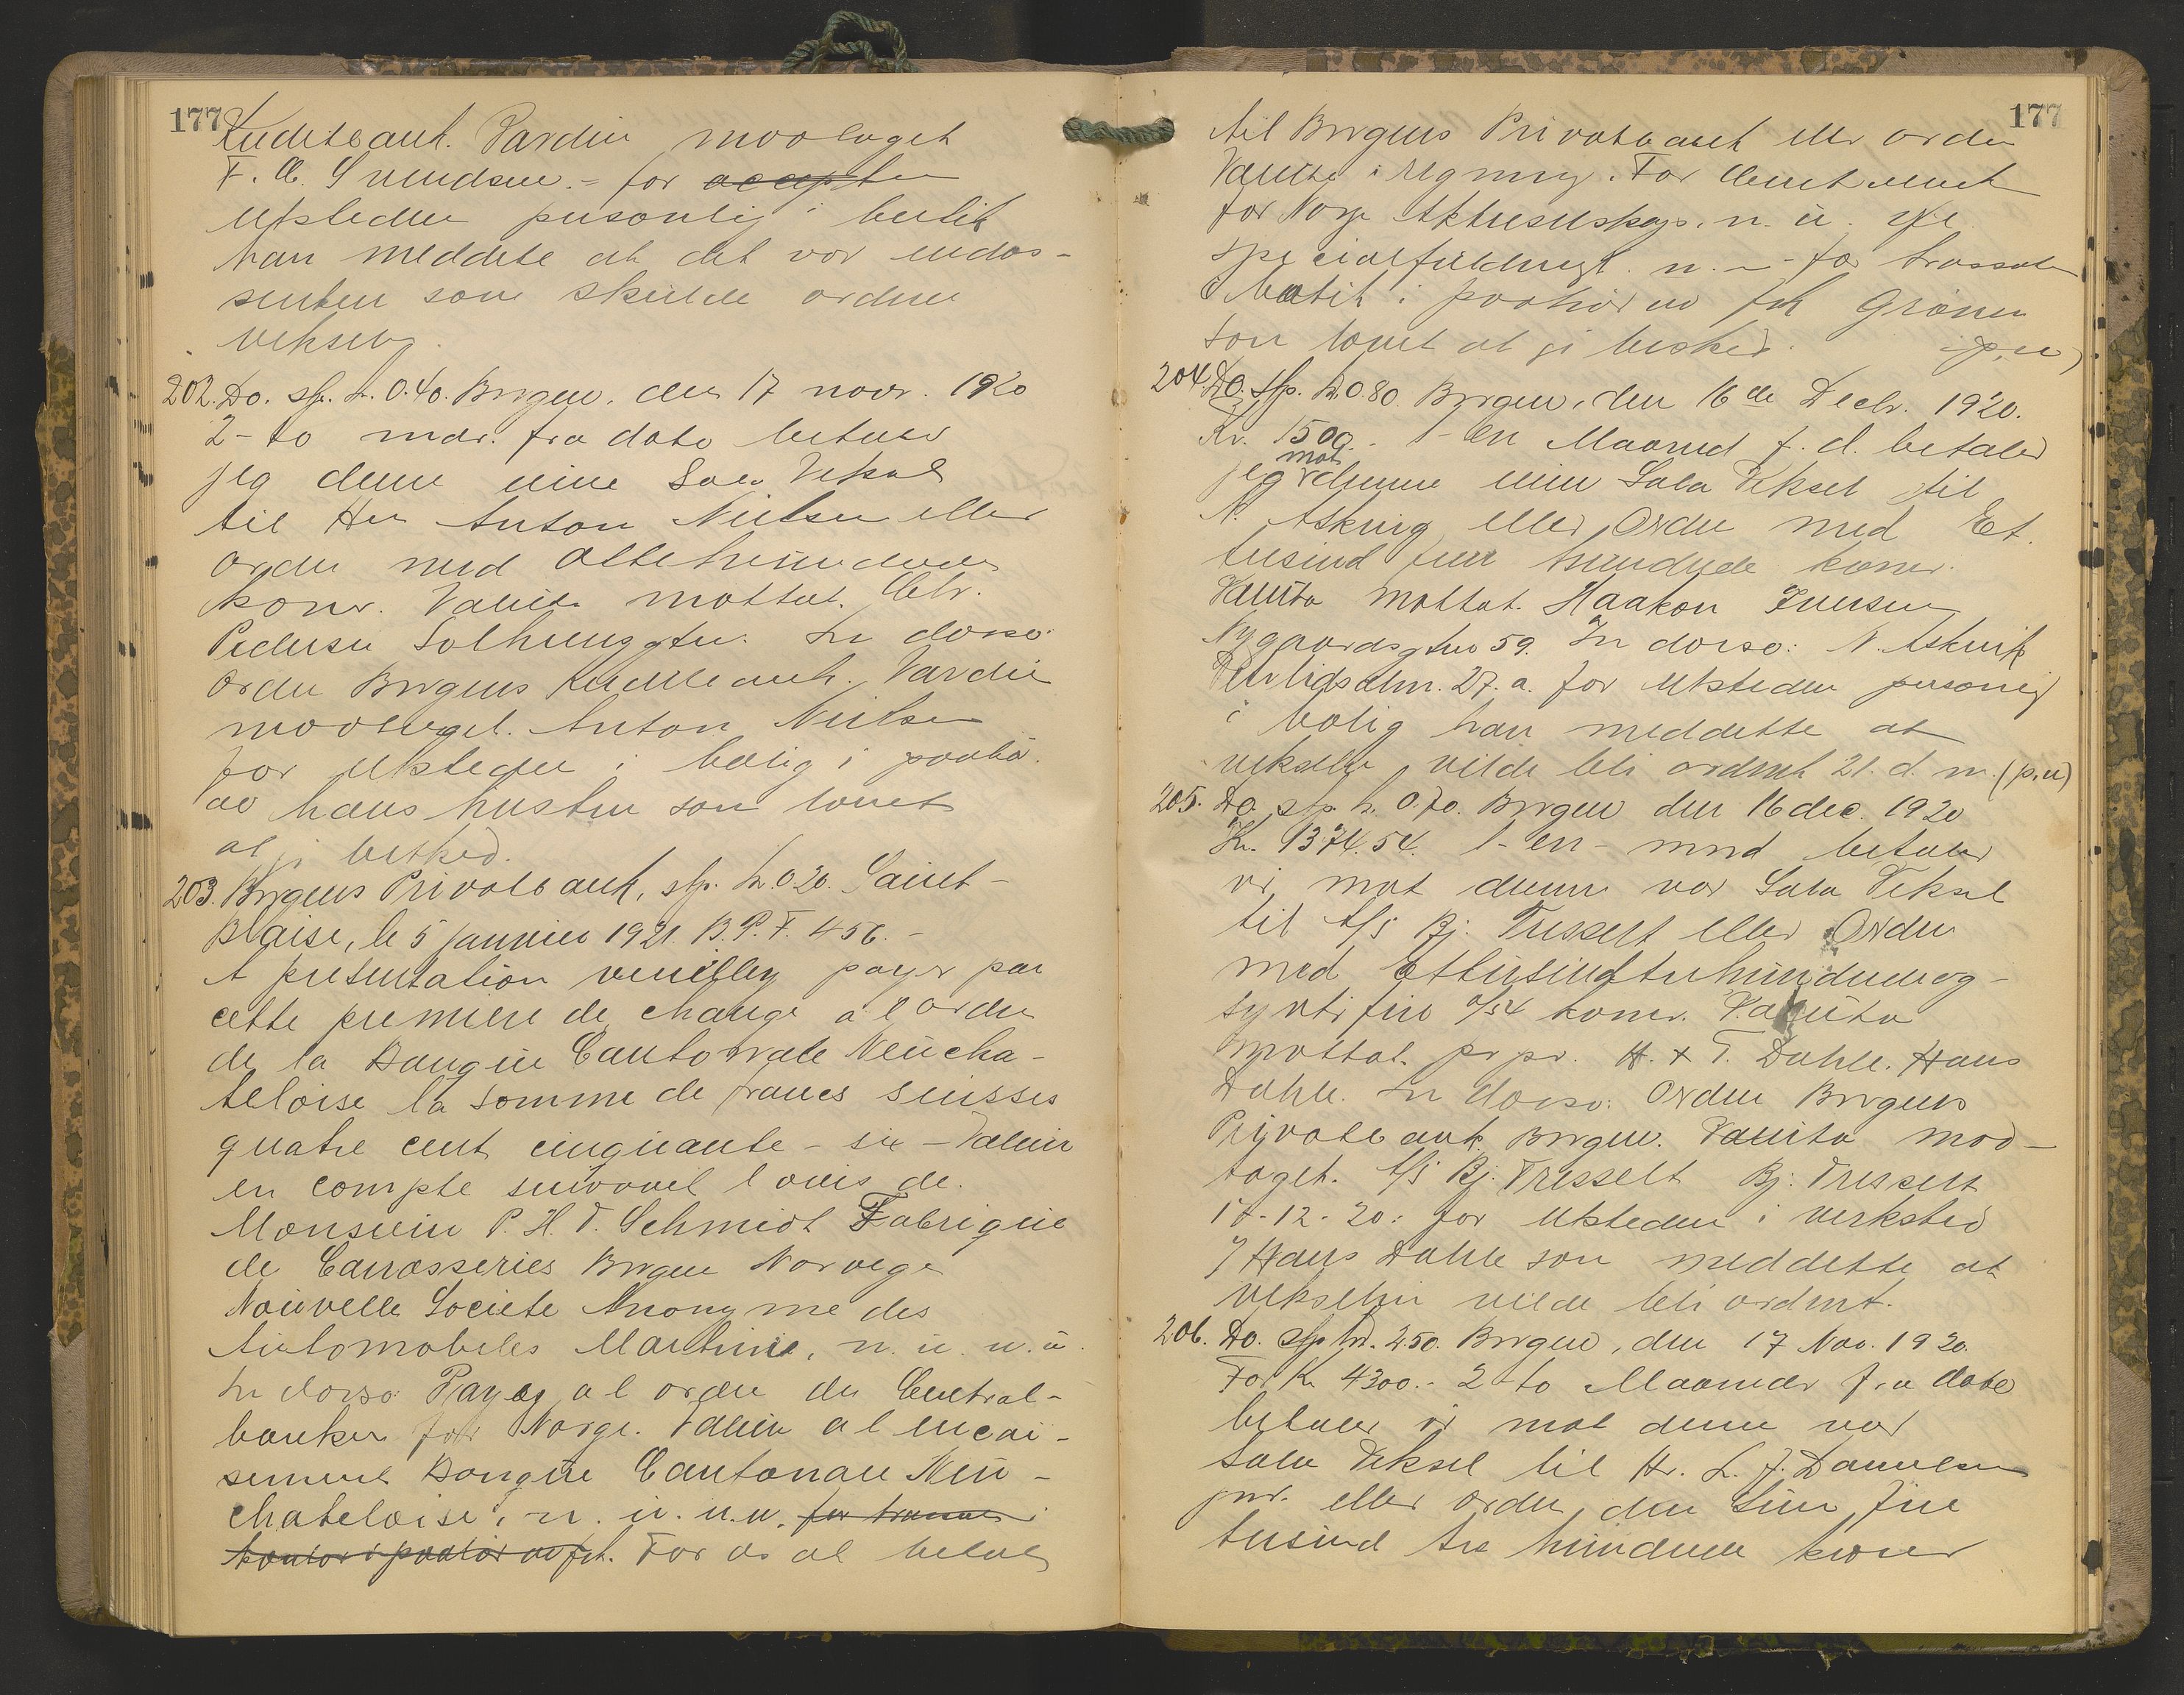 177
Kreditbank. Værdien modtaget
F. C. Svendsen. = for accepten
utstederen personlig i butik
han meddelte at det var endos-
senten som skulde ordne
vekselen.
202. Do. stp. kr. 0.40. Bergen, den 17 novr. 1920
2 - to mdr. fra dato betaler
jeg denne min Sola Veksel
til Herr Anton Nielsen eller
ordre med Ottehundrede
kroner. Valuta mottat. Chr.
Pedersen Solheimsgtn. In dorso:
Ordre Bergens Kreditbank. Værdie
modtaget. Anton Nielsen
for utstederen i bolig i paahør
av hans hustru som lovet
at gi besked.
203. Bergens Privatbank, stp. kr. 0.20. Saint-
Blaise, le 5 janvier 1921. B. P. F. 456.-
A presentation veuillez payer par
cette premiere de change a l ordre
de la Banque Cantonale Neucha-
teloise la somme de francs suisses
quatre cent cinquante - six - Valeur
en compte suivant l avis de.
Monsieur P. H. T. Schmidt Fabrique
de Carrosseries Bergen Norvege
Nouvelle Societe Anonyme des
Automobiles Martini, n. u. n. u.
In dorso Payez a l ordre de Central-
banken for Norge. Valeur a l encai-
sement Banque Cantonale Neu-
chateloise, n. u. n. u. for trassaten i
kontor i paahør av frk. For os at betale
177
til Bergens Privatbank eller ordre
Valuta i regning. For Centralbank
for Norge Aktieselskap. n. u. ifl.
specialfuldmagt. n. - for trassaten
i butik i paahør av frk Grönen
som lovet at gi besked. (p.u)
204. Do. stp. kr. 0.80. Bergen, den 16de Decbr. 1920.
Kr. 1500.- 1 - en Maaned f. d. betaler
jeg mot denne min Sola Veksel til
N. Askvig eller Ordre med Et.
tusind fem hundrede kroner.
Valuta mottat. Haakon Iversen
Nygaardsgtn 59. In dorso: N. Askvik
27. a. for utstederen personlig
i bolig han meddelte at
vekselen vilde bli ordnet 21. d. m. (p.u)
205. Do. stp. kr. 0.70. Bergen den 16 dec. 1920
Kr. 1374.54. 1 - en - mnd betaler
vi mot denne vor Sola Veksel
til A/S Bj. Tresselt eller Ordre
med ettusindtrehundredeog-
syvtifire o/54 kroner. Valuta
mottat. pr pr. H. & T. Dahle. Hans
Dahle. In dorso: Ordre Bergens
Privatbank Bergen. Valuta mod-
taget. A/S Bj. Tresselt Bj. Tresselt
18-12-20: for utstederen i verksted
v/ Hans Dahle som meddelte at
vekselen vilde bli ordnet.
206. Do. stp. kr. 2.50. Bergen, den 17 Nov. 1920.
For Kr. 4300.- 2 to Maaneder fra Dato
betaler vi mot denne vor
Sola Veksel til Hr. L. J. Danielsen
jnr. eller ordre, den Sum Fire
tusind tre hundrede kroner